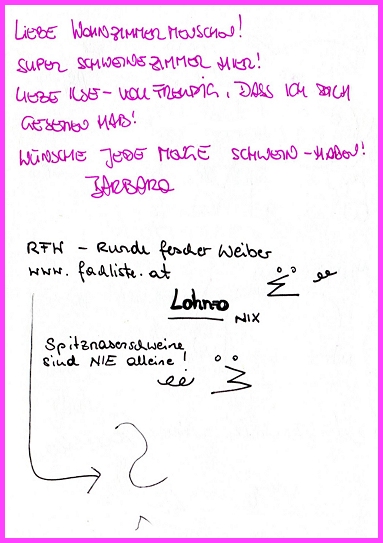 LIEBE WOHNZIMMERMENSCHEN!
SUPER SCHWEINEZIMMER HIER!
LIEBE ILSE - VOLL FREUDIG, DASS ICH DICH
GESEHEN HAB!
WÜNSCHE JEDE MENGE SCHWEIN-HABEN!
BARBARA
RFW - Runde fescher Weiber
www.fachliste.at
Lohn-o
NIX
Spitznasenschweine
sind NIE alleine!